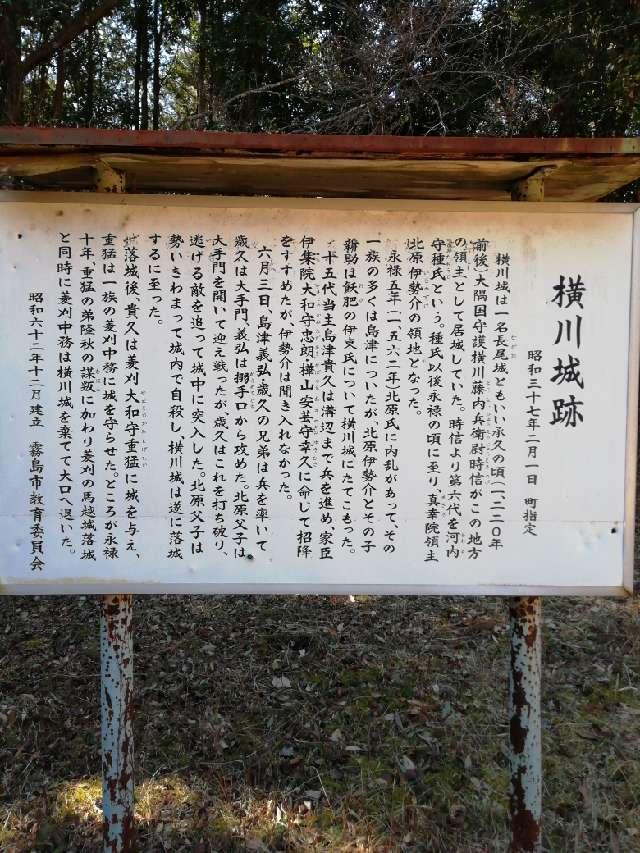 横川城跡
昭和三十七年二月一日 町指定
横川城は一名長尾城ともいい永久の頃(一二二〇年
前後)大隅国守護横川藤内兵衛尉時信がこの地方
の領主として居城していた。時信より第六代を河内
守種氏という。種氏以後永禄の頃に至り真幸院領主
北原伊勢介の領地となった。
永禄五年(一五六二年)北原氏に内乱があって、その
一族の多くは島津についたが、北原伊勢介とその子
新助は飫肥の伊東氏について横川城にたてこもった。
十五代当主島津貴久は溝辺まで兵を進め、家臣
伊集院大和守忠朗・樺山安芸守幸久に命して招降
をすすめたが伊勢介は聞き入れなかった。
六月三日、島津義弘・歳久の兄弟は兵を率いて
歳久は大手門、義弘は搦手口から攻めた。北原父子は
大手門を開いて迎え戦ったが、歳久はこれを打ち破り、
逃げる敵を追って城中に突入した。北原父子は
勢いきわまって城内で自殺し、横川城は遂に落城
するに至った。
落城後、貴久は菱刈大和守重猛に城を与え、
重猛は一族の菱刈中務に城を守らせた。ところが永禄
十年、重猛の弟隆秋の謀叛に加わり菱刈の馬越城落城
と同時に菱刈中務は横川城を棄てて大口へ退いた。
昭和六十二年十二月建立 霧島市教育委員会